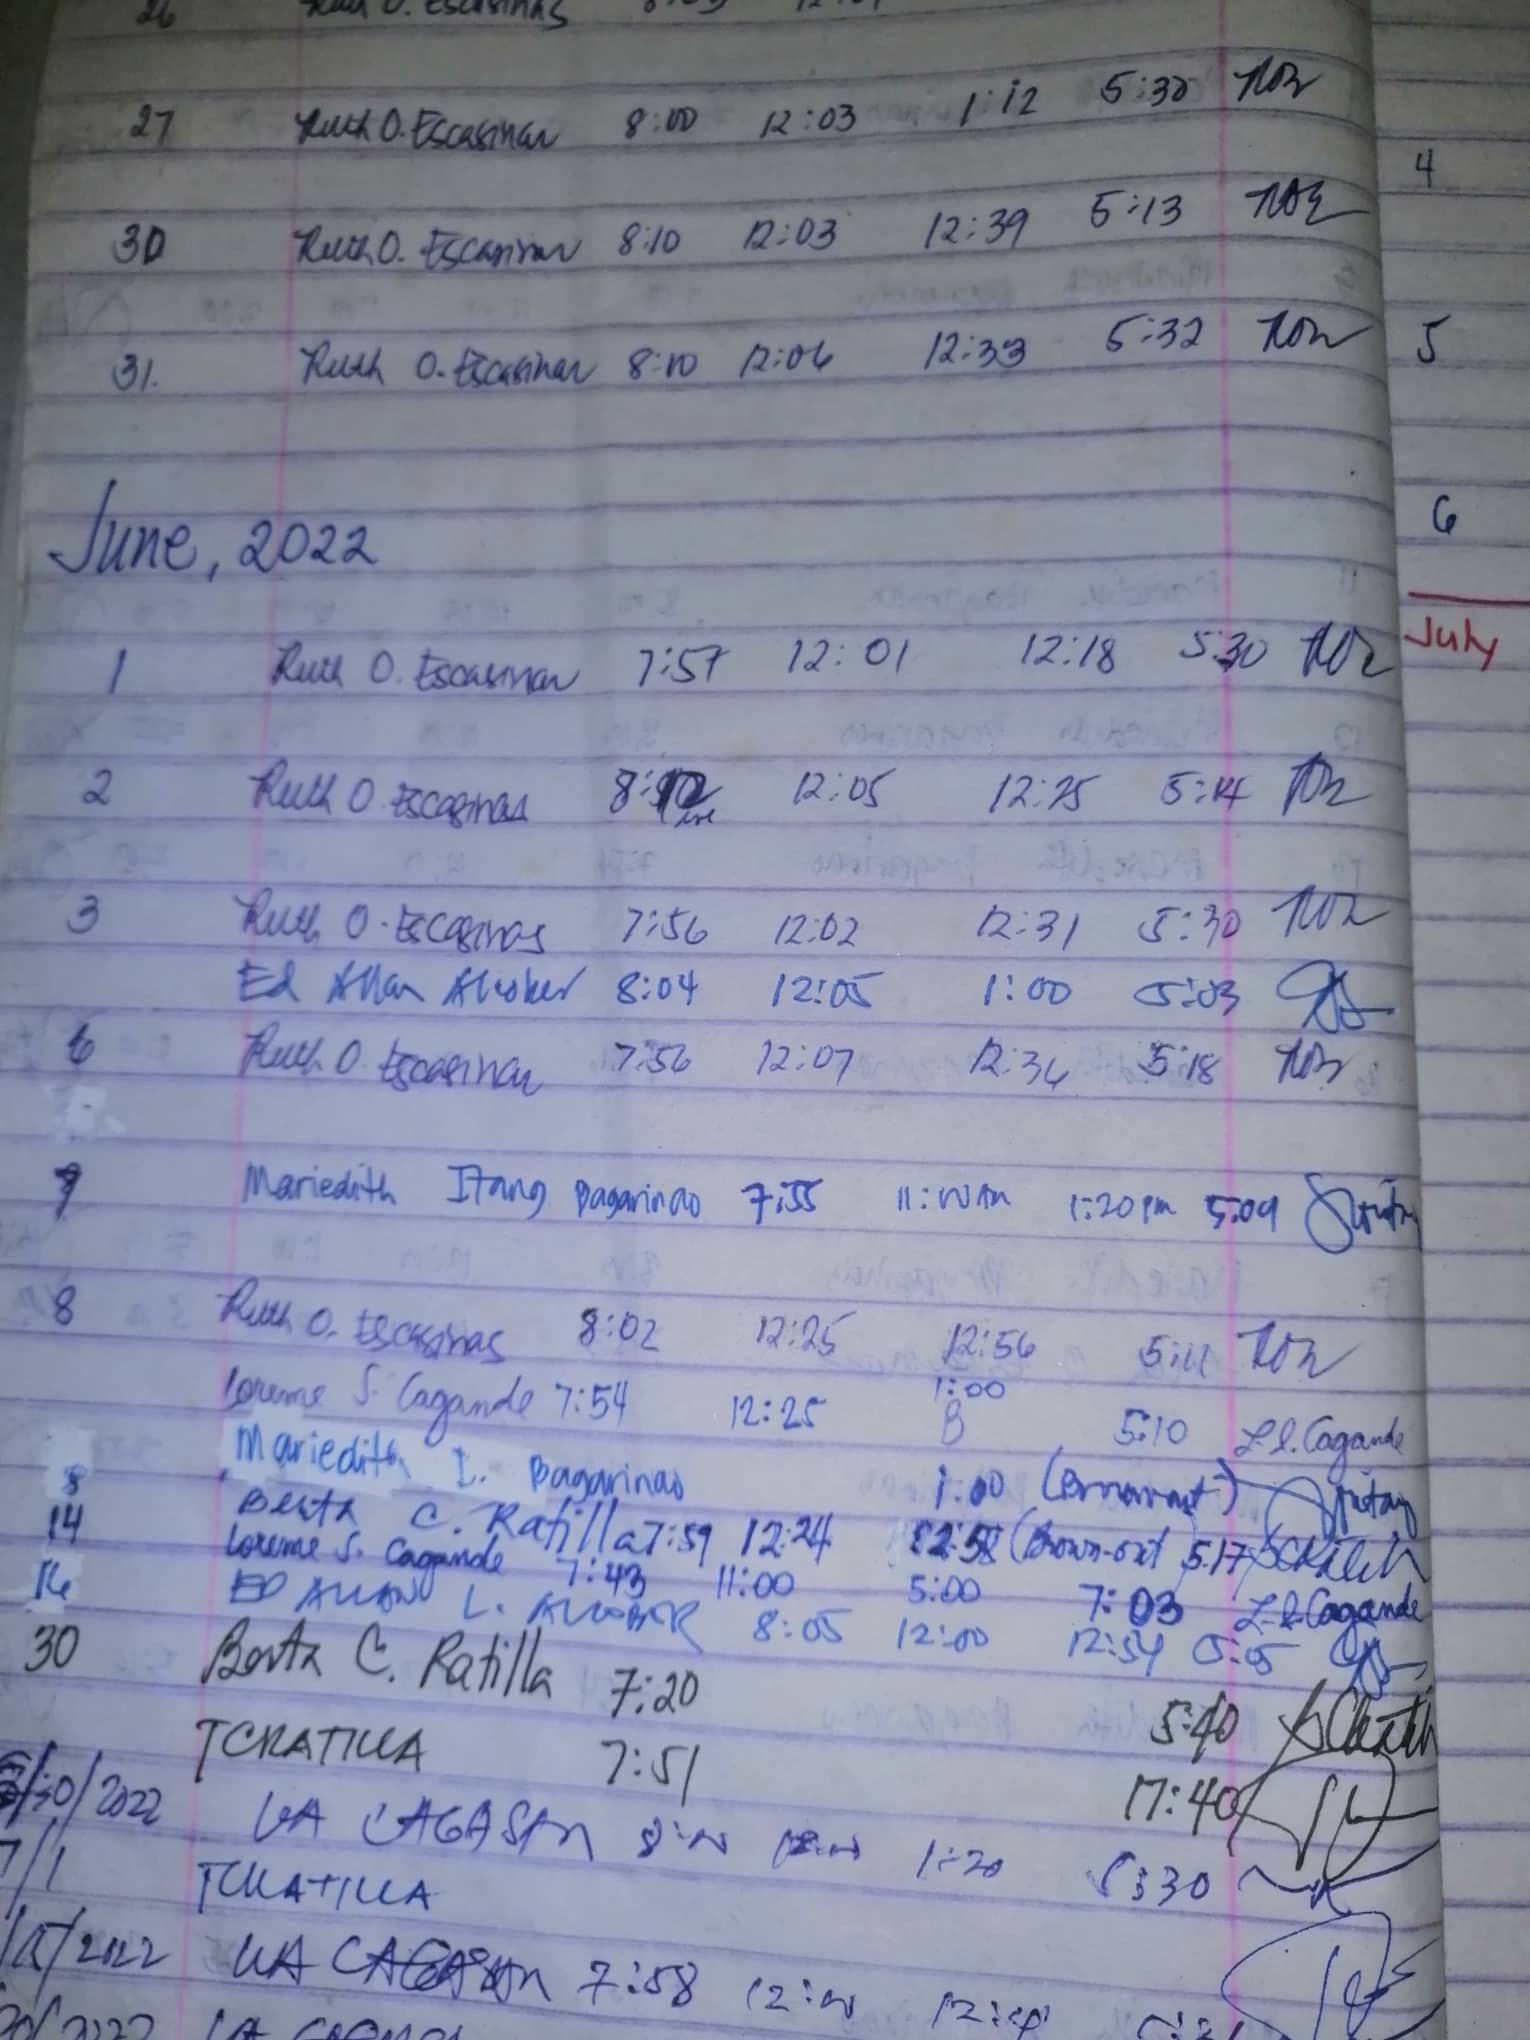 26 Ruth O. Escasinas
27 Ruth O. Escasinas 8:00 12:03 1:12 5:30
4
30 Ruth O. Escasinas 8:10 12:03 12:39 5:13
31. Ruth O. Escasinas 8:10 12:06 12:33 5:32
5
6
June, 2022
July
1 Ruth O. Escasinas 7:57 12:01 12:18 5:30
2 Ruth O. Escasinas 12:05 12:25 5:14
3 Ruth O. Escasinas 7:56 12:02 12:31 5:30
Ed Allan Alkober 8:04 12:05 1:00 5:03
6 Ruth O. Escasinas 7:56 12:07 12:34 5:18
7 Mariedith Itang Bagarinao 7:55 11:00 Am 1:20 pm 5:09
8 Ruth O. Escasinas 8:02 12:25 12:56 5:11
Loreme S. Cagande 7:54 12:25 1:00 5:10 L.S. Cagande
8 Mariedith I. Bagarinao 1:00 (Brownout)
14 Berta C. Ratilla 7:59 12:24 12:58 (Brown-out) 5:17
Loreme S. Cagande 7:43 11:00 5:00 7:03 L.S. Cagande
16 ED ALLAN L. ALKOBER 8:05 12:00 12:54 5:05
30 Berta C. Ratilla 7:20 5:40
TCRATILLA 7:51 17:40
/30/2022 CAGASAN 1:20 5:30
7/1 TCRATILLA
/2022 CAGASAN 7:58
/2022